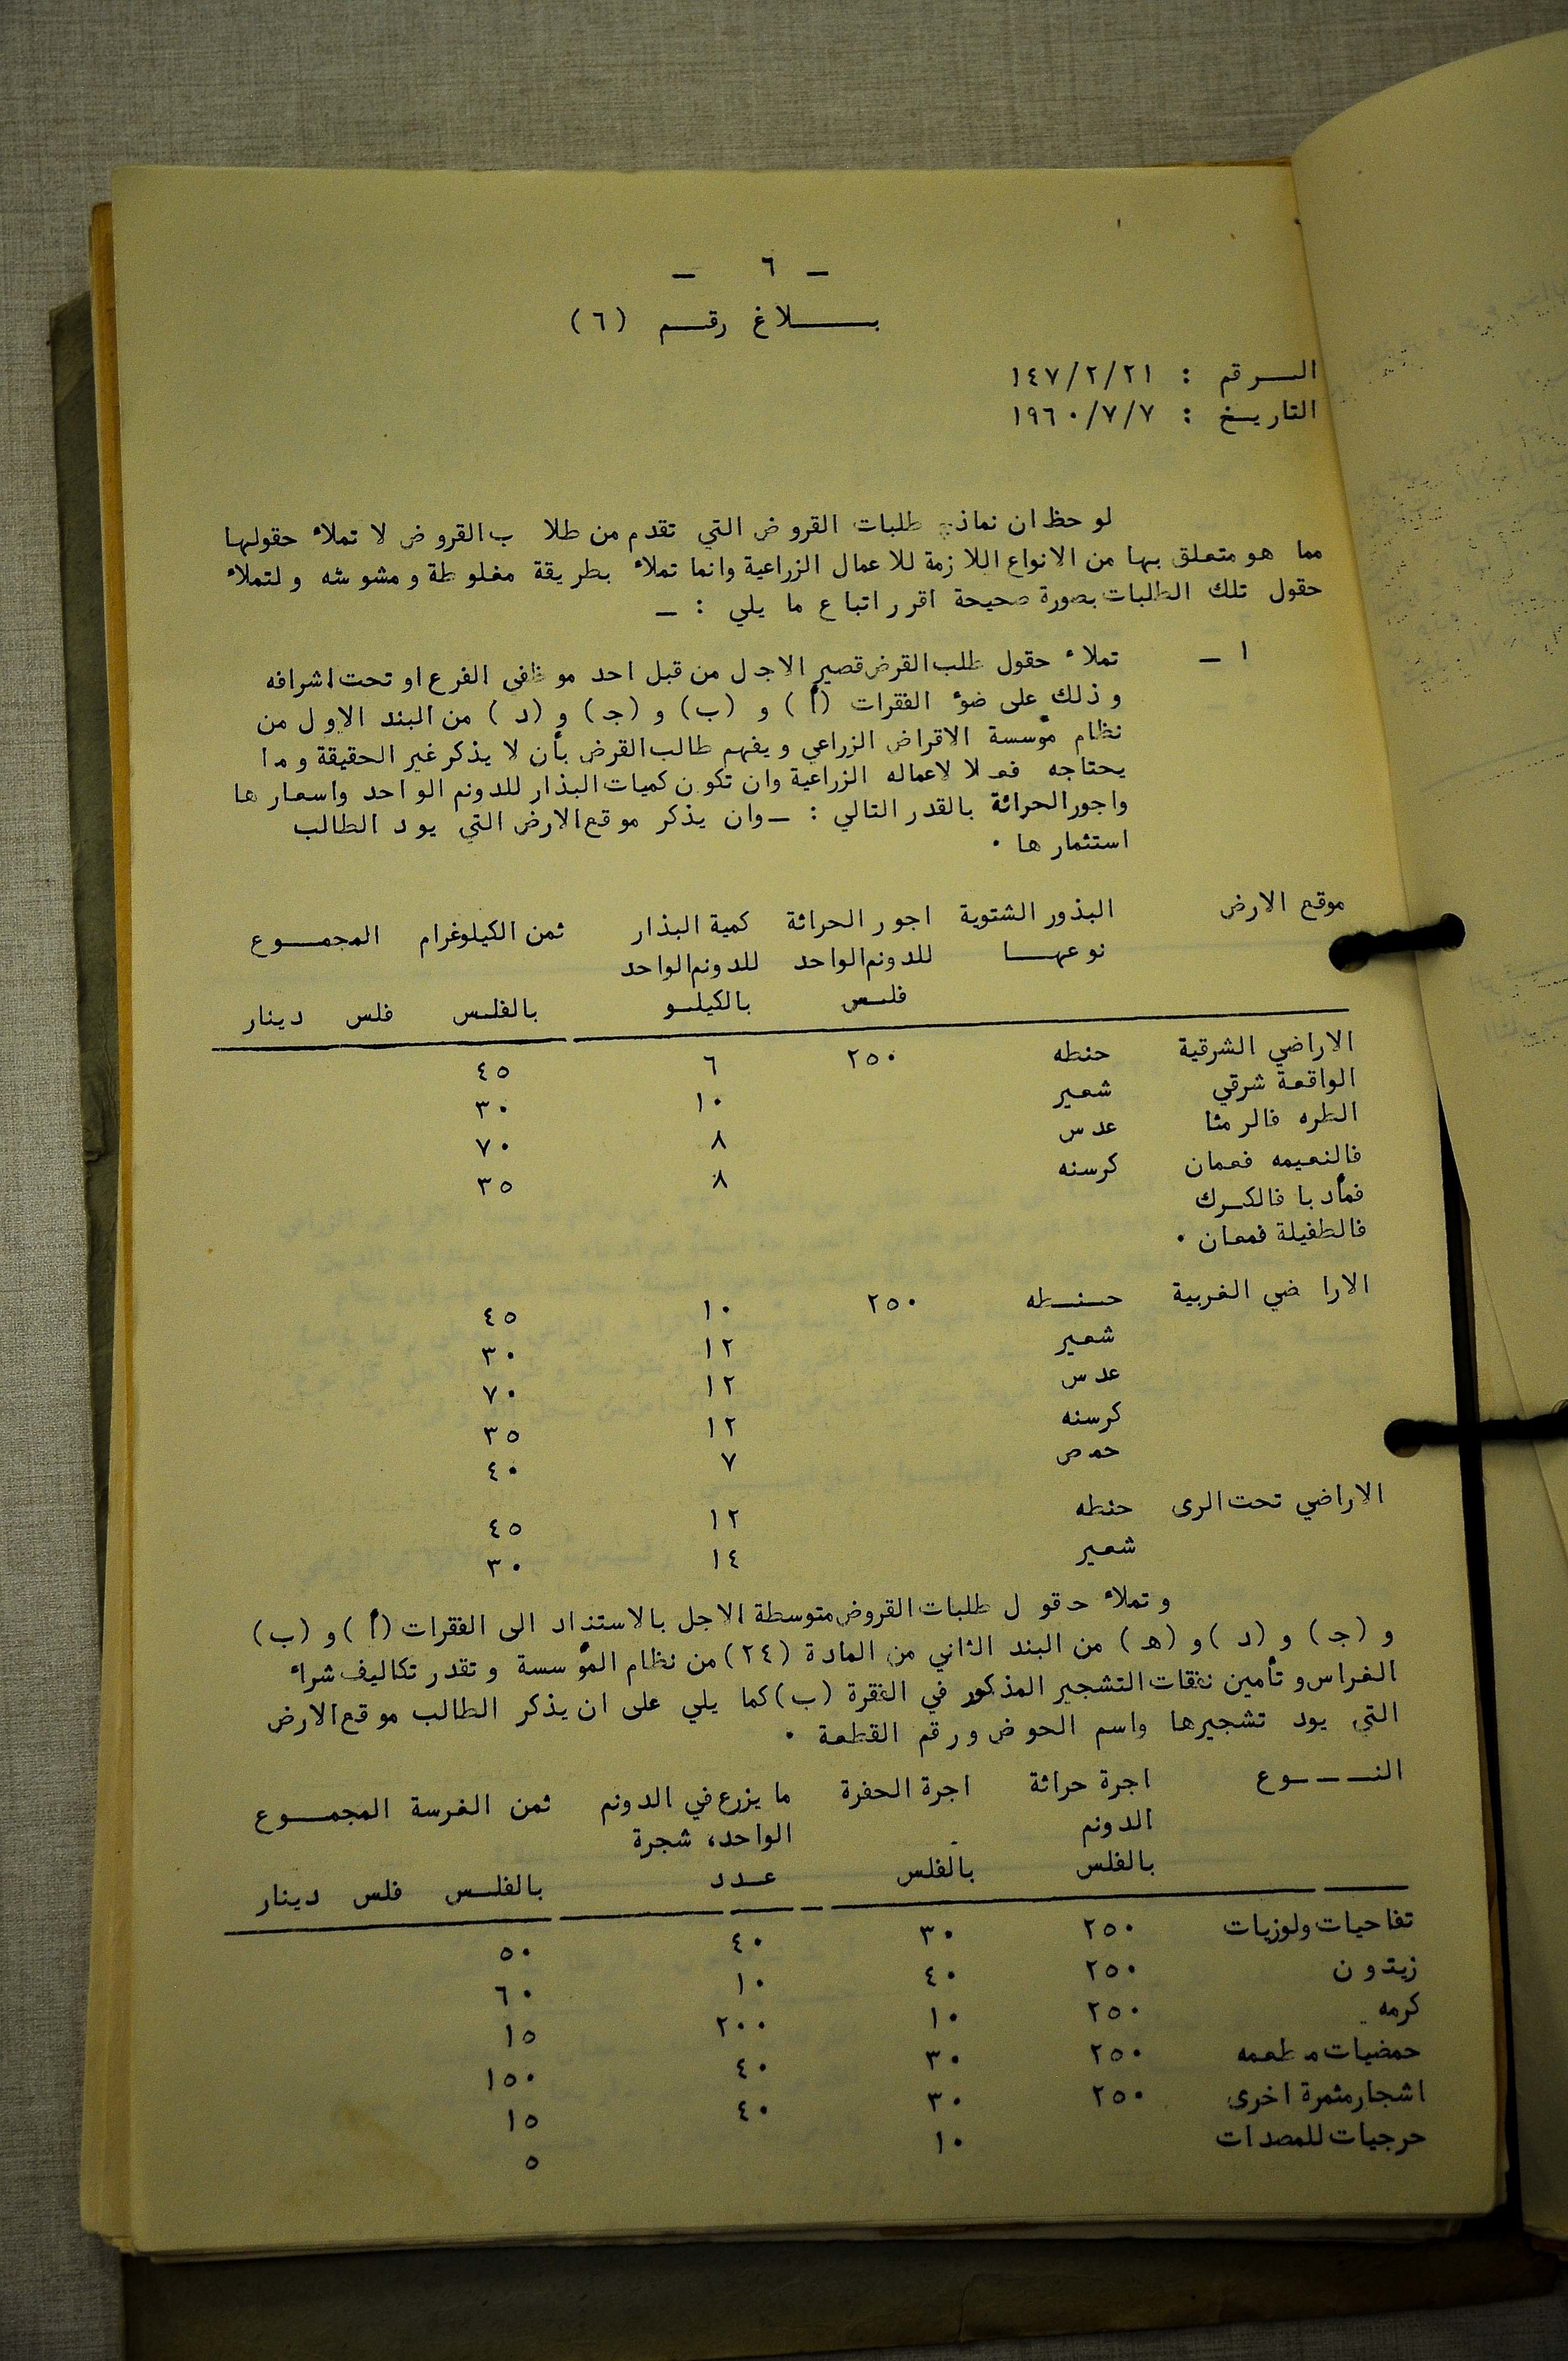 - ٦ -
بـــلاغ رقـــم (٦)
الــرقم : ١٤٧/٢/٢١
التاريــخ : ١٩٦٠/٧/٧
لوحظ ان نماذج طلبات القروض التي تقدم من طلاب القروض لا تملاء حقولها
مما هو متعلق بها من الانواع اللازمة للاعمال الزراعية وانما تملاء بطريقة مغلوطة ومشوشه ولتملاء
حقول تلك الطلبات بصورة صحيحة اقرر اتباع ما يلي : -
١ - تملاء حقول طلب القرض قصير الاجل من قبل احد موظفي الفرع او تحت اشرافه
وذلك على ضوء الفقرات (أ) و (ب) و (جـ) و (د) من البند الاول من
نظام مؤسسة الاقراض الزراعي ويفهم طالب القرض بأن لا يذكر غير الحقيقة وما
يحتاجه فعلا لاعماله الزراعية وان تكون كميات البذار للدونم الواحد واسعارها
واجور الحراثة بالقدر التالي : - وان يذكر موقع الارض التي يود الطالب
استثمارها ٠
موقع الارض البذور الشتوية اجور الحراثة كمية البذار ثمن الكيلوغرام المجمـــوع
نوعهـــا للدونم الواحد للدونم الواحد
فلـس بالكيلـو بالفلـس فلس دينار
الاراضي الشرقية حنطه ٢٥٠ ٦ ٤٥
الواقعة شرقي شعير ١٠ ٣٠
الطره فالرمثا عدس ٨ ٧٠
فالنعيمه فعمان كرسنه ٨ ٣٥
فمأدبا فالكـرك
فالطفيلة فمعان ٠
الاراضي الغربية حــنــطه ٢٥٠ ١٠ ٤٥
شعير ١٢ ٣٠
عدس ١٢ ٧٠
كرسنه ١٢ ٣٥
حمص ٧ ٤٠
الاراضي تحت الرى حنطه ١٢ ٤٥
شعير ١٤ ٣٠
وتملاء حقول طلبات القروض متوسطة الاجل بالاستناد الى الفقرات (أ) و (ب)
و (جـ) و (د) و (هـ) من البند الثاني من المادة (٢٤) من نظام المؤسسة وتقدر تكاليف شراء
الغراس وتأمين نفقات التشجير المذكور في الفقرة (ب) كما يلي على ان يذكر الطالب موقع الارض
التي يود تشجيرها واسم الحوض ورقم القطعة ٠
النـــــوع اجرة حراثة اجرة الحفرة ما يزرع في الدونم ثمن الغرسة المجمـــوع
الدونم الواحد، شجرة
بالفلس بالفلس عــدد بالفلـس فلس دينار
تفاحيات ولوزيات ٢٥٠ ٣٠ ٤٠ ٥٠
زيتون ٢٥٠ ٤٠ ١٠ ٦٠
كرمه ٢٥٠ ١٠ ٢٠٠ ١٥
حمضيات مطعمه ٢٥٠ ٣٠ ٤٠ ١٥٠
اشجار مثمرة اخرى ٢٥٠ ٣٠ ٤٠ ١٥
حرجيات للمصدات ١٠ ٥